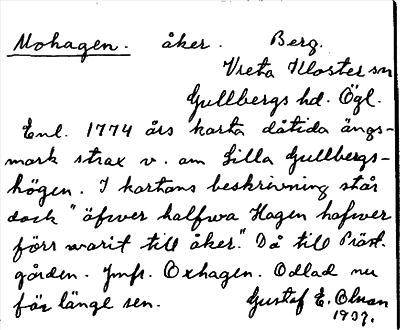 Mohagen. åker. Berg.
Vreta Kloster sn
Gullbergs hd. Ögl.
Enl. 1774 års karta dåtida ängs-
mark strax v. om Lilla Gullbergs-
högen. I kartans beskrivning står
dock "öfwer halfwa Hagen hafwer
förr warit till åker." Då till Präst-
gården. Jmfr. Oxhagen. Odlad nu
för länge sen. Gustaf E. Olsson
1937.